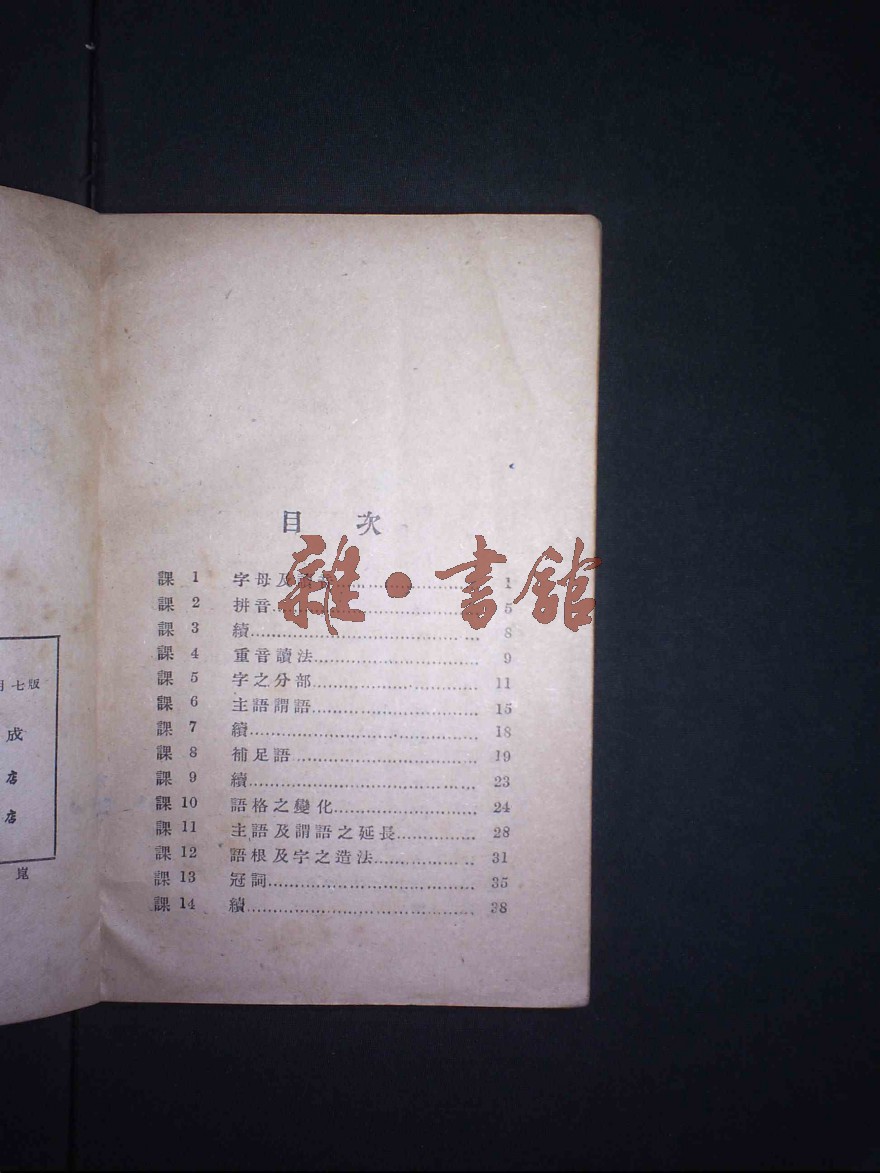 月七版
成
店
店
崑
目 次
雜·書館
課 1 字母及 1
課 2 拼音 5
課 3 續 8
課 4 重音讀法 9
課 5 字之分部 11
課 6 主語謂語 15
課 7 續 18
課 8 補足語 19
課 9 續 23
課 10 語格之變化 24
課 11 主語及謂語之延長 28
課 12 語根及字之造法 31
課 13 冠詞 35
課 14 續 38